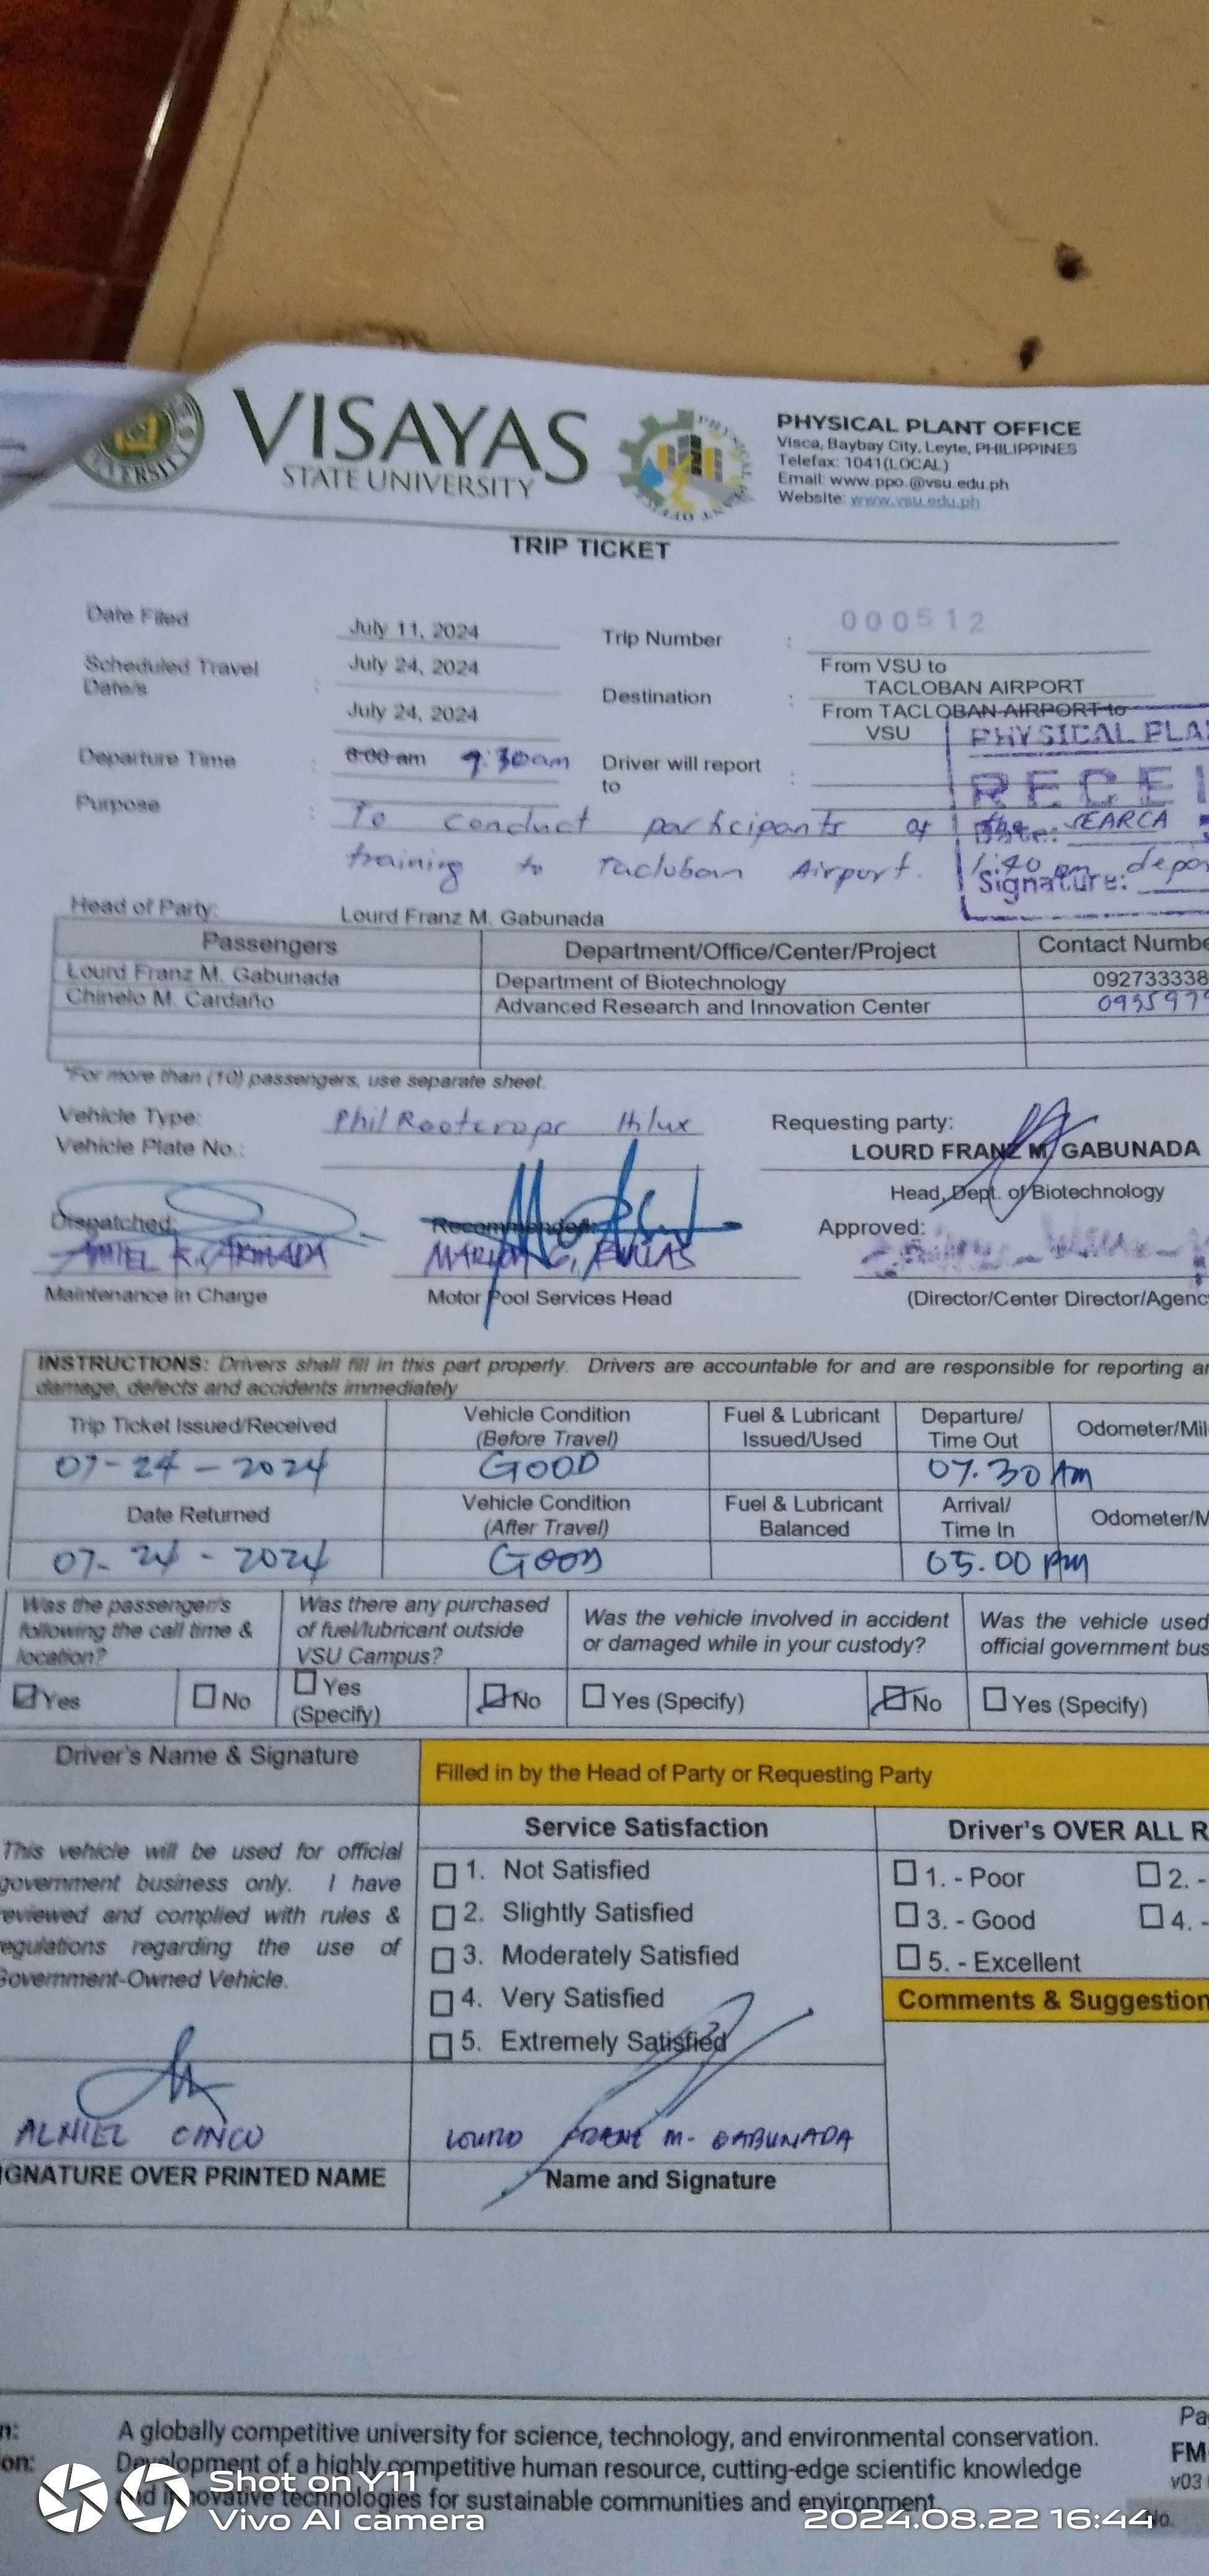 VISAYAS
STATE UNIVERSITY
PHYSICAL PLANT OFFICE
Visca, Baybay City, Leyte, PHILIPPINES
Telefax: 1041(LOCAL)
Email: www.ppo.@vsu.edu.ph
Website: www.vsu.edu.ph
TRIP TICKET
Date Filed July 11, 2024 Trip Number : 000512
Scheduled Travel Date/s : July 24, 2024 Destination : From VSU to TACLOBAN AIRPORT
July 24, 2024 From TACLOBAN AIRPORT to VSU
PHYSICAL PLA
Departure Time : 8:00 am 9:30am Driver will report to :
RECEI
Purpose : To conduct participants of the SEARCA
training to Tacloban Airport. 1:40 pm depar
Date:
Signature:
Head of Party: Lourd Franz M. Gabunada
Passengers Department/Office/Center/Project Contact Numbe
Lourd Franz M. Gabunada Department of Biotechnology 092733338
Chinelo M. Cardaño Advanced Research and Innovation Center 093597
*For more than (10) passengers, use separate sheet.
Vehicle Type: Phil Rootcrops Hilux Requesting party:
Vehicle Plate No.: LOURD FRANZ M. GABUNADA
Head, Dept. of Biotechnology
Dispatched: Recommended: Approved:
Maintenance in Charge Motor Pool Services Head (Director/Center Director/Agenc
INSTRUCTIONS: Drivers shall fill in this part properly. Drivers are accountable for and are responsible for reporting a
damage, defects and accidents immediately
Trip Ticket Issued/Received Vehicle Condition (Before Travel) Fuel & Lubricant Issued/Used Departure/ Time Out Odometer/Mil
07-24-2024 GOOD 07.30 AM
Date Returned Vehicle Condition (After Travel) Fuel & Lubricant Balanced Arrival/ Time In Odometer/M
07-24-2024 GOOD 05.00 PM
Was the passenger's following the call time & location? Was there any purchased of fuel/lubricant outside VSU Campus? Was the vehicle involved in accident or damaged while in your custody? Was the vehicle used official government bus
Yes No Yes (Specify) No Yes (Specify) No Yes (Specify)
Driver's Name & Signature Filled in by the Head of Party or Requesting Party
Service Satisfaction Driver's OVER ALL R
This vehicle will be used for official
government business only. I have
reviewed and complied with rules &
regulations regarding the use of
Government-Owned Vehicle.
1. Not Satisfied
2. Slightly Satisfied
3. Moderately Satisfied
4. Very Satisfied
5. Extremely Satisfied
1. - Poor 2. -
3. - Good 4. -
5. - Excellent
Comments & Suggestion
ALNIEL CINCO LOURD FRANZ M. GABUNADA
IGNATURE OVER PRINTED NAME Name and Signature
n: A globally competitive university for science, technology, and environmental conservation.
on: Development of a highly competitive human resource, cutting-edge scientific knowledge
and innovative technologies for sustainable communities and environment.
Pa
FM
v03
No.
Shot on Y11
Vivo AI camera
2024.08.22 16:44